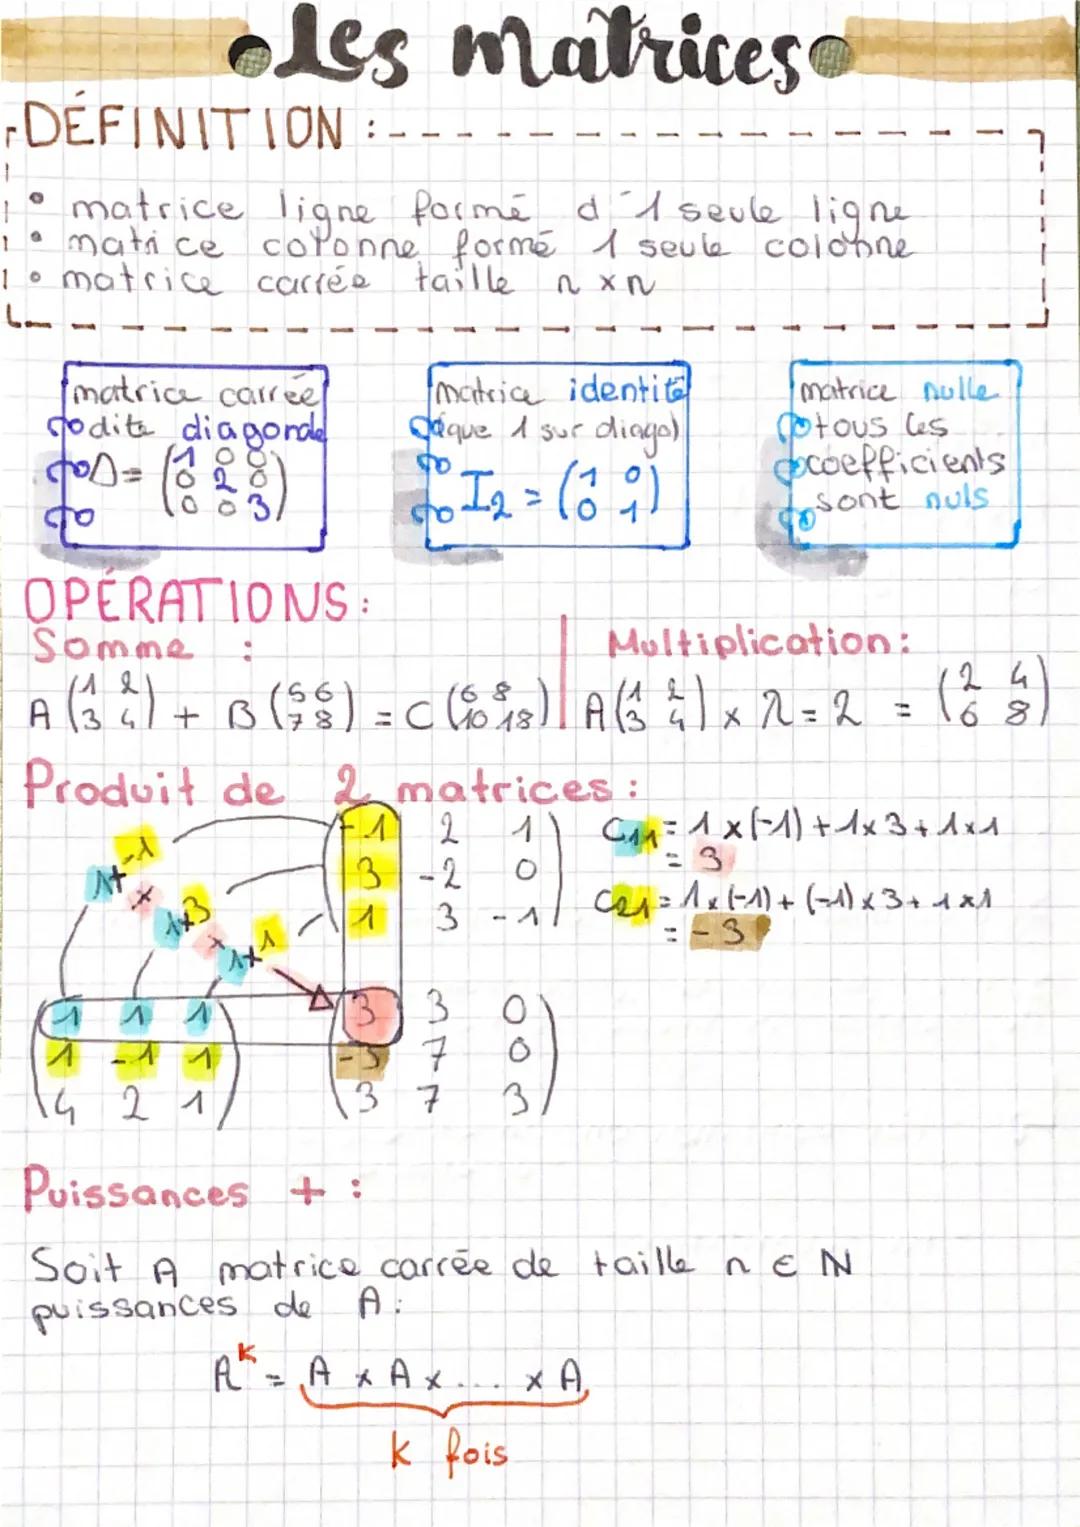 Les matrices
DÉFINITION :
• matrice ligne formé d'1 seule ligne
• matrice colonne formé 1 seule colonne
• matrice carrée taille n x n
matrice carrée
dite diagonale
Δ = (1 0 0
0 2 0
0 0 3)
matrice identité
(que 1 sur diago)
I2 = (1 0
0 1)
matrice nulle
tous les
coefficients
sont nuls
OPÉRATIONS :
Somme :
A (1 2
3 4) + B (5 6
7 8) = C (6 8
10 18)
Multiplication :
A (1 2
3 4) x λ = 2 = (2 4
6 8)
Produit de 2 matrices :
(-1 2 1
3 -2 0
1 3 -1)
C11 = 1 x (-1) + 1 x 3 + 1 x 1
= 3
C21 = 1 x (-1) + (-1) x 3 + 1 x 1
= -3
1 + -1
x
1 + 3
x
1 + 1
(1 1 1
1 -1 1
4 2 1)
(3 3 0
-3 7 0
3 7 3)
Puissances + :
Soit A matrice carrée de taille n ∈ N
puissances de A :
A^k = A x A x ... x A
k fois